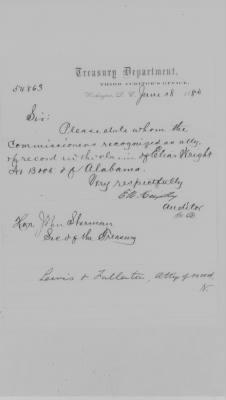 Treasury Department,
THIRD AUDITOR'S OFFICE,
54863
Washington, D. C. June 18 1880
Sir:
Please state whom the
Commissioners recognized as atty.
of record in the claim of Elias Wright
of Alabama.
Very respectfully
Auditor
Hon. John Sherman
Sec of the Treasury
Lewis & Fullerton, Attys of record